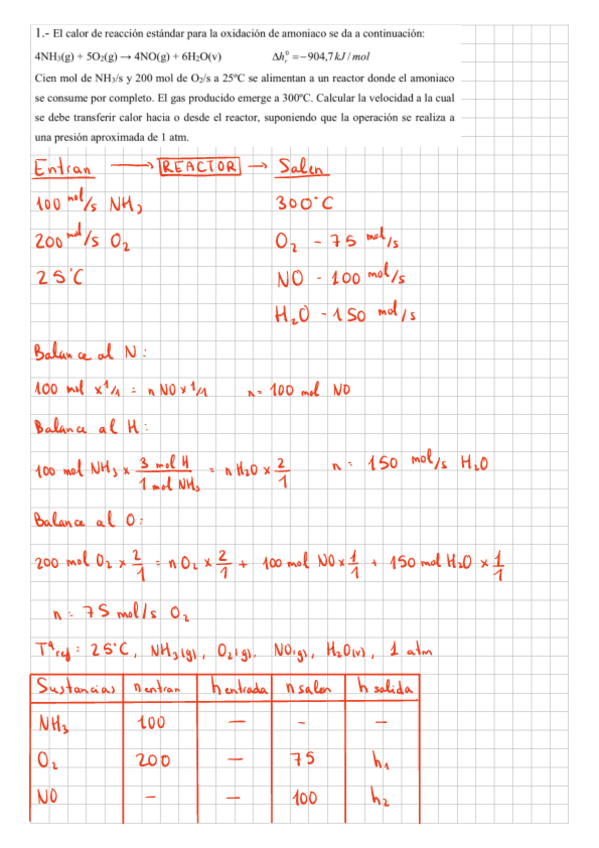 1.- El calor de reacción estándar para la oxidación de amoniaco se da a continuación:
4NH₃(g) + 5O₂(g) → 4NO(g) + 6H₂O(v) Δhᵣ⁰ = −904,7 kJ / mol
Cien mol de NH₃/s y 200 mol de O₂/s a 25ºC se alimentan a un reactor donde el amoniaco
se consume por completo. El gas producido emerge a 300ºC. Calcular la velocidad a la cual
se debe transferir calor hacia o desde el reactor, suponiendo que la operación se realiza a
una presión aproximada de 1 atm.
Entran → REACTOR → Salen
100 mol/s NH₃ 300°C
200 mol/s O₂ O₂ - 75 mol/s
25°C NO - 100 mol/s
H₂O - 150 mol/s
Balance al N:
100 mol x 1/1 = n NO x 1/1 n = 100 mol NO
Balance al H:
100 mol NH₃ x 3 mol H / 1 mol NH₃ = n H₂O x 2/1 n = 150 mol/s H₂O
Balance al O:
200 mol O₂ x 2/1 = n O₂ x 2/1 + 100 mol NO x 1/1 + 150 mol H₂O x 1/1
n = 75 mol/s O₂
Tª ref = 25°C, NH₃(g), O₂(g), NO(g), H₂O(v), 1 atm
Sustancias n entran h entrada n salen h salida
NH₃ 100 — - -
O₂ 200 — 75 h₁
NO - — 100 h₂